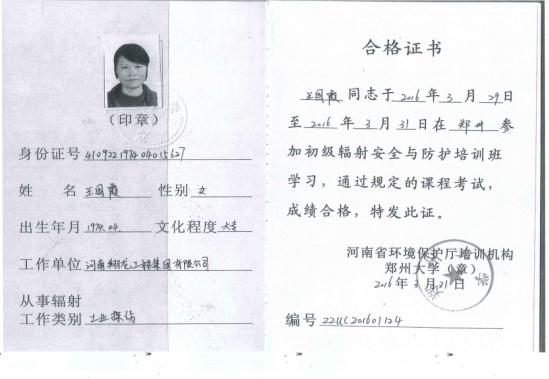 （印章）
身份证号 410922197404015627
姓 名 王国霞 性别 女
出生年月 1974.04. 文化程度 大专
工作单位 河南翔龙工程集团有限公司
从事辐射
工作类别 工业探伤
合格证书
王国霞 同志于 2016 年 3 月 29 日
至 2016 年 3 月 31 日在 郑州 参
加初级辐射安全与防护培训班
学习，通过规定的课程考试，
成绩合格，特发此证。
河南省环境保护厅培训机构
郑州大学（章）
2016 年 3 月 31 日
编号 ZZUC201601124